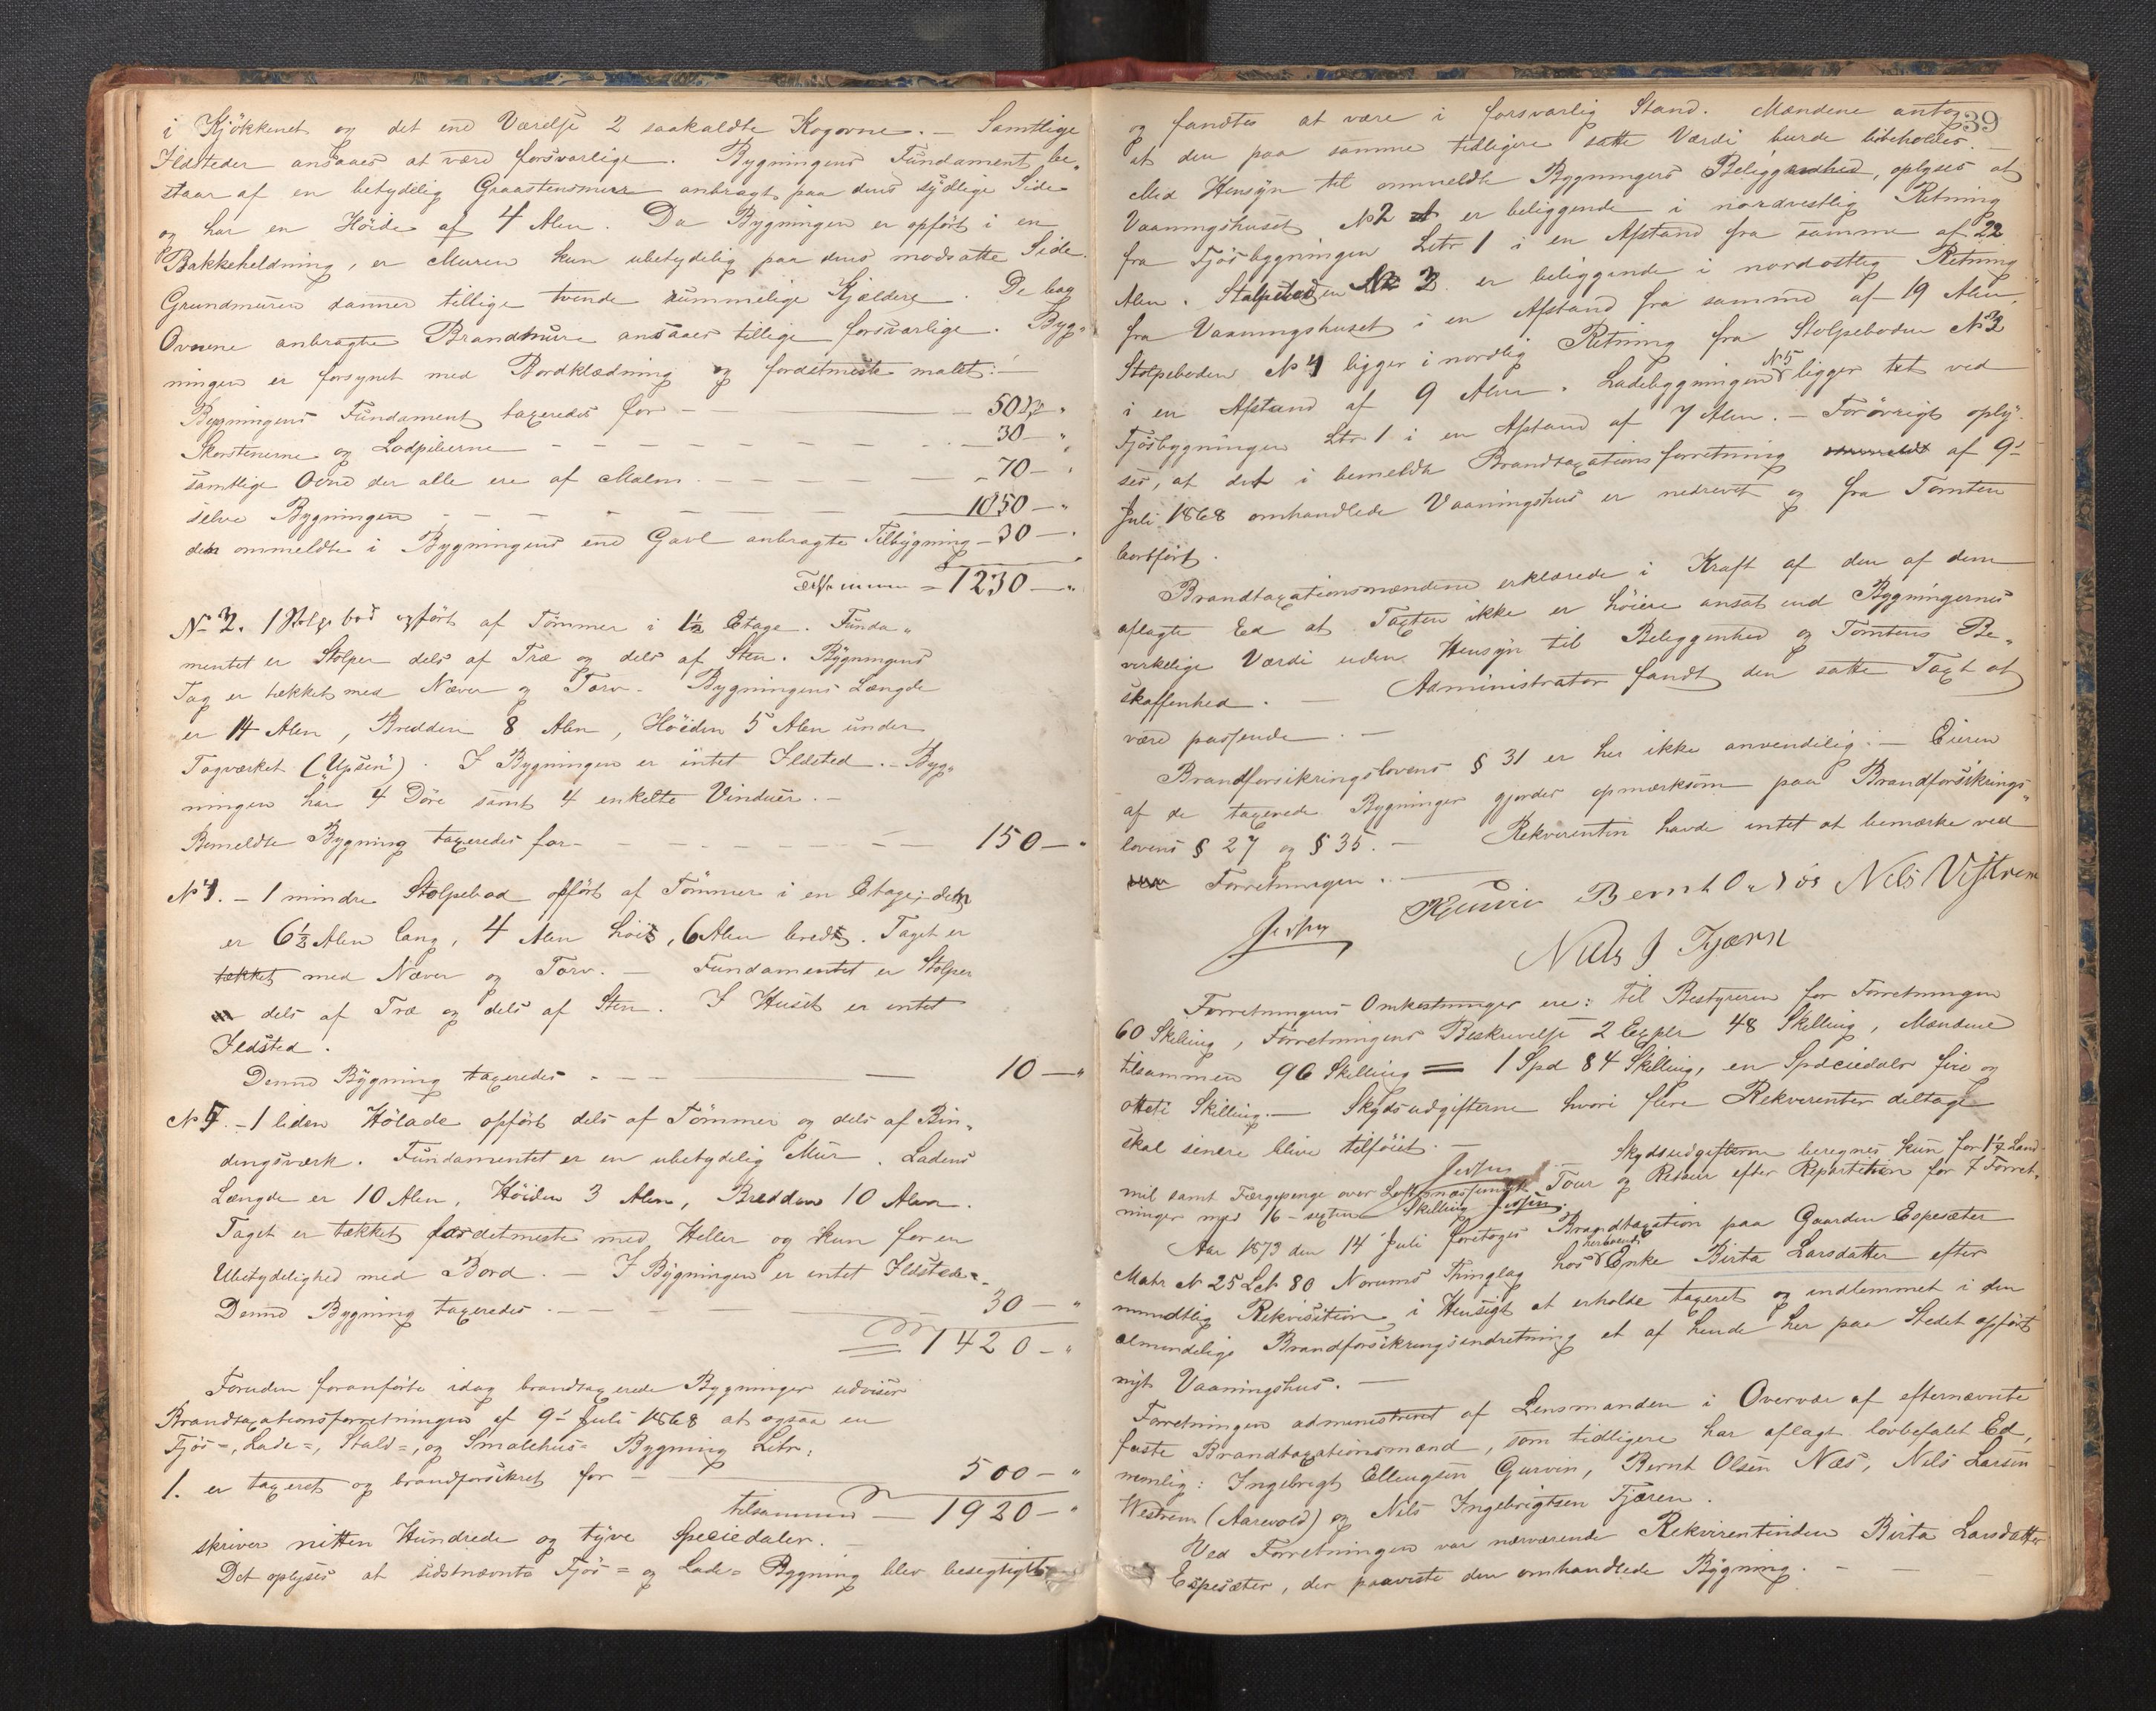 i Kjökkenet og det ene Værelse 2 saakaldte Kogovne. — Samtlige
Ildsteder ansaaes at være forsvarlige. Bygningens Fundament be„
staar af en betydelig Graastensmur anbragt paa dens sydlige Side
og har en Höide af 4 Alen. Da Bygningen er opfört i en
Bakkeheldning, er Muren kun ubetydelig paa dens modsatte Side.
Grundmuren danner tillige tvende rummelige Kjældere. De bag
Ovnene anbragte Brandmure ansaaes tillige forsvarlige. Byg„
ningen er forsynet med Bordklædning og fordetmeste malet: —
Bygningens Fundament taxeredes for — 50
Skorstenerne og Lodpiberne — 30 — „
samtlige Ovne der alle ere af Malm — 70 — „
selve Bygningen — 1050 — „
den ommeldte i Bygningens ene Gavl anbragte Tilbygning — 30 — „
= 1230 — „
No 3. 1 Stolpebod opfört af Tömmer i 1½ Etage. Funda„
mentet er Stolper dels af Træ og dels af Sten. Bygningens
Tag er tækket med Næver og Torv. Bygningens Længde
er 14 Alen, Bredden 8 Alen, Höiden 5 Alen under
Tagværket („Upsen"). I Bygningen er intet Ildsted. — Byg„
ningen har 4 Döre samt 4 enkelte Vinduer. —
Bemeldte Bygning taxeredes for — 150 — „
No 4. — 1 mindre Stolpebod opfört af Tömmer i en Etage; den
er 6½ Alen lang, 4 Alen höi, 6 Alen bred. Taget er
tækket med Næver og Torv. — Fundamentet er Stolper
dels af Træ og dels af Sten. I Huset er intet
Ildsted.
Denne Bygning taxeredes — 10 — „
No 5. — 1 liden Hölade opfört dels af Tömmer og dels af Bin„
dingsværk. Fundamentet er en ubetydelig Mur. Ladens
Længde er 10 Alen, Höiden 3 Alen, Bredden 10 Alen.
Taget er tækket fordetmeste med Heller og kun for en
Ubetydelighed med Bord. — I Bygningen er intet Ildsted. —
Denne Bygning taxeredes. — 30 — „
= 1420 — „
Foruden foranförte idag brandtaxerede Bygninger udviser
Brandtaxationsforretningen af 9de Juli 1868 at ogsaa en
Fjös =, Lade =, Stald =, og Smalehus = Bygning Litr:
1. er taxeret og brandforsikret for — 500 — „
tilsammen — 1920 — „
skriver nitten Hundrede og tyve Speciedaler. —
Det oplyses at sidstnævnte Fjös = og Lade = Bygning blev besegtiget
39
og fandtes at være i forsvarlig Stand. Mændene antog
at den paa samme tidligere satte Værdi burde bibeholdes. —
Med Hensyn til ommeldte Bygningers Beliggenhed, oplyses at
Vaaningshuset No 2 er beliggende i nordvestlig Retning
fra Fjösbygningen Litr 1 i en Afstand fra samme af 22
Alen. Stolpeboden No 3 er beliggende i nordostlig Retning
fra Vaaningshuset i en Afstand fra samme af 19 Alen.
Stolpeboden No 4 ligger i nordlig Retning fra Stolpeboden No 3
i en Afstand af 9 Alen. Ladebygningen No 5 ligger tet ved
Fjösbygningen Litr 1 i en Afstand af 7 Alen. — Forövrigt oply„
ses, at det i bemeldte Brandtaxationsforretning af 9de
Juli 1868 omhandlede Vaaningshus er nedrevet og fra Tomten
bortfört.
Brandtaxationsmændene erklærede i Kraft af den af dem
aflagte Ed at Taxten ikke er höiere ansat end Bygningernes
virkelige Værdi uden Hensyn til Beliggenhed og Tomtens Be„
skaffenhed. — Administrator fandt den satte Taxt at
være passende. —
Brandforsikringslovens § 31 er her ikke anvendelig. — Eieren
af de taxerede Bygninger gjordes opmærksom paa Brandforsikrings„
lovens § 27 og § 35. — Rekvirenten havde intet at bemærke ved
Forretningen. —
Bernt O Nils Vistrem
Niels J Tjærn
Forretningens Omkostninger ere: til Bestyreren for Forretningen
60 Skilling, Forretningens Beskrivelse 2 Expl 48 Skilling, Mændene
tilsammen 96 Skilling = 1 Spd 84 Skilling, en Speciedaler fire og
otteti Skilling. — Skydsudgifterne hvori flere Rekvirenter deltage
skal senere blive tilföiet. —
Skydsudgifterne beregnes kun for 1½ Land„
mil samt Færgepenge over Tour og Retour efter Repartition for 7 Forret„
ninger med 16 — sexten Skilling
Aar 1873 den 14 Juli foretoges Brandtaxation paa Gaarden Espesæter
Matr No 25 Lb 80 Norums Thinglag hos herboende Enke Birta Larsdatter efter
mundtlig Rekvisition, i Hensigt at erholde taxeret og indlemmet i den
almindelige Brandforsikringsindretning et af hende her paa Stedet opfört
nyt Vaaningshus. —
Forretningen administreret af Lensmanden i Overvær af efternævnte
faste Brandtaxationsmænd, som tidligere har aflagt lovbefalet Ed,
nemlig: Ingebrigt Ellingsen Gurvin, Bernt Olsen Næs, Nils Larsen
Westrem (Aarevold) og Nils Ingebrigtsen Tjæren.
Ved Forretningen var nærværende Rekvirentinden Birta Larsdatter
Espesæter, der paaviste den omhandlede Bygning. —